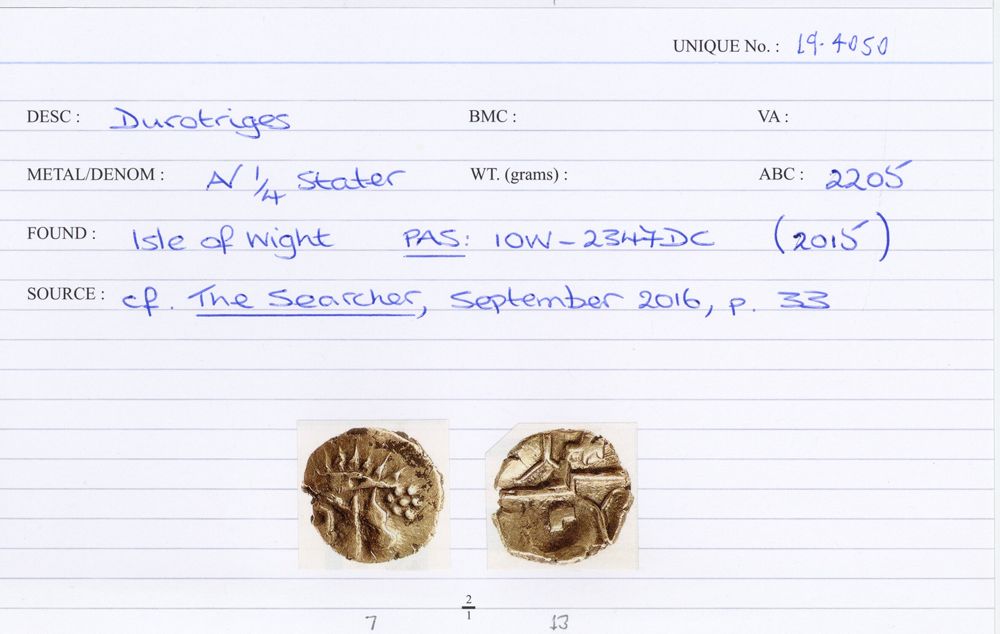 UNIQUE No. : 19-4050
DESC : Durotriges BMC : VA :
METAL/DENOM : AV 1/4 Stater WT. (grams) : ABC : 2205
FOUND : Isle of Wight PAS: IOW-2347DC (2015)
SOURCE : cf. The Searcher, September 2016, p. 33
2/1
7 13